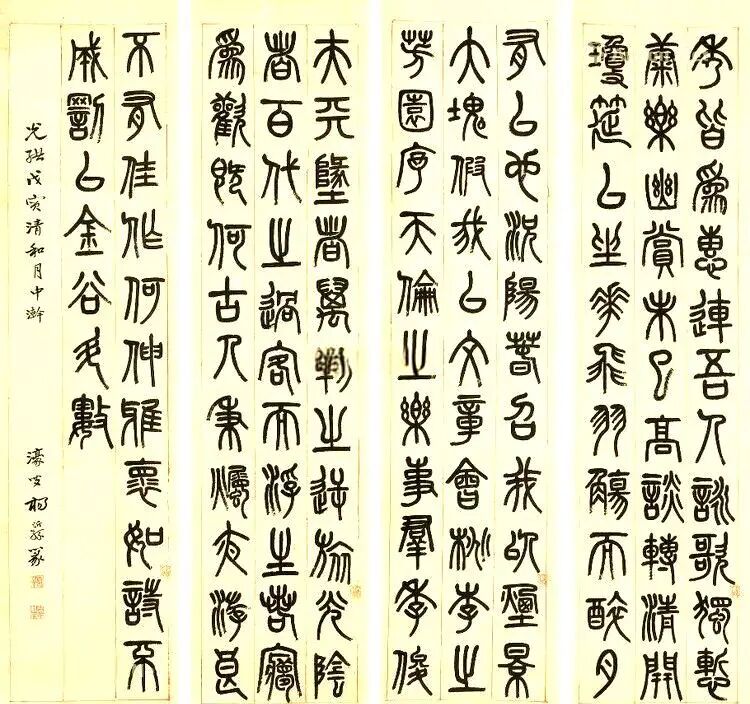 秀皆爲惠連吾人詠歌獨慙
康樂幽賞未已高談轉清開
瓊筵以坐華飛羽觴而醉月
有以也況陽春召我以煙景
大塊假我以文章會桃李之
芳園序天倫之樂事羣季俊
夫天墬者萬物之逆旅光陰
者百代之過客而浮生若夢
爲歡既何古人秉燭夜游良
不有佳作何伸雅懷如詩不
成罰以金谷酒數
光緒戊寅清和月中澣
濠叟楊沂孫篆